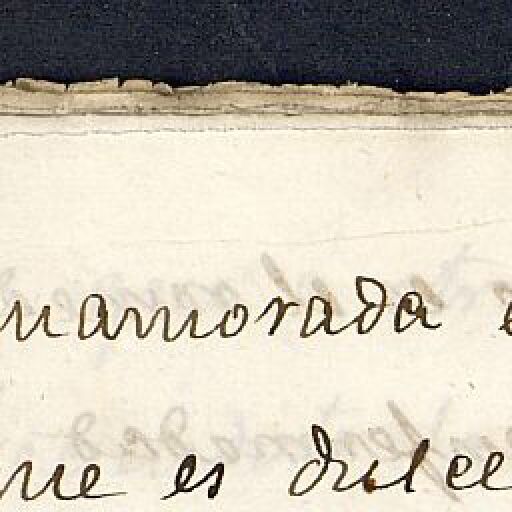 namorada
ue es dulce